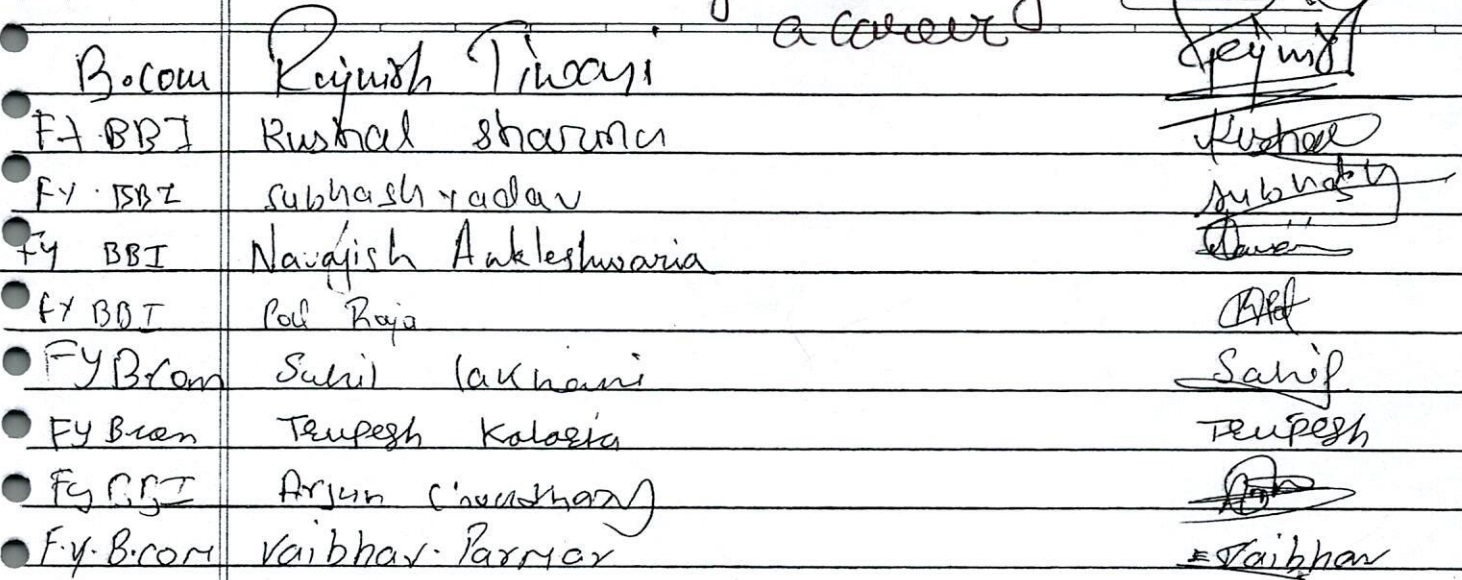 a career
B.com Rajnish Tiwari
FY BBI Kushal Sharma Kushal
FY. BBI Subhash yadav Subhash
Fy BBI Navajish Ankleshwaria
FY BBI Raja
FY B.Com Sahil lakhani Sahil
FY B.com Trupesh Kalaria Trupesh
Fy BBI Arjun Choudhary
F.y. B.com Vaibhav. Parmar Vaibhav